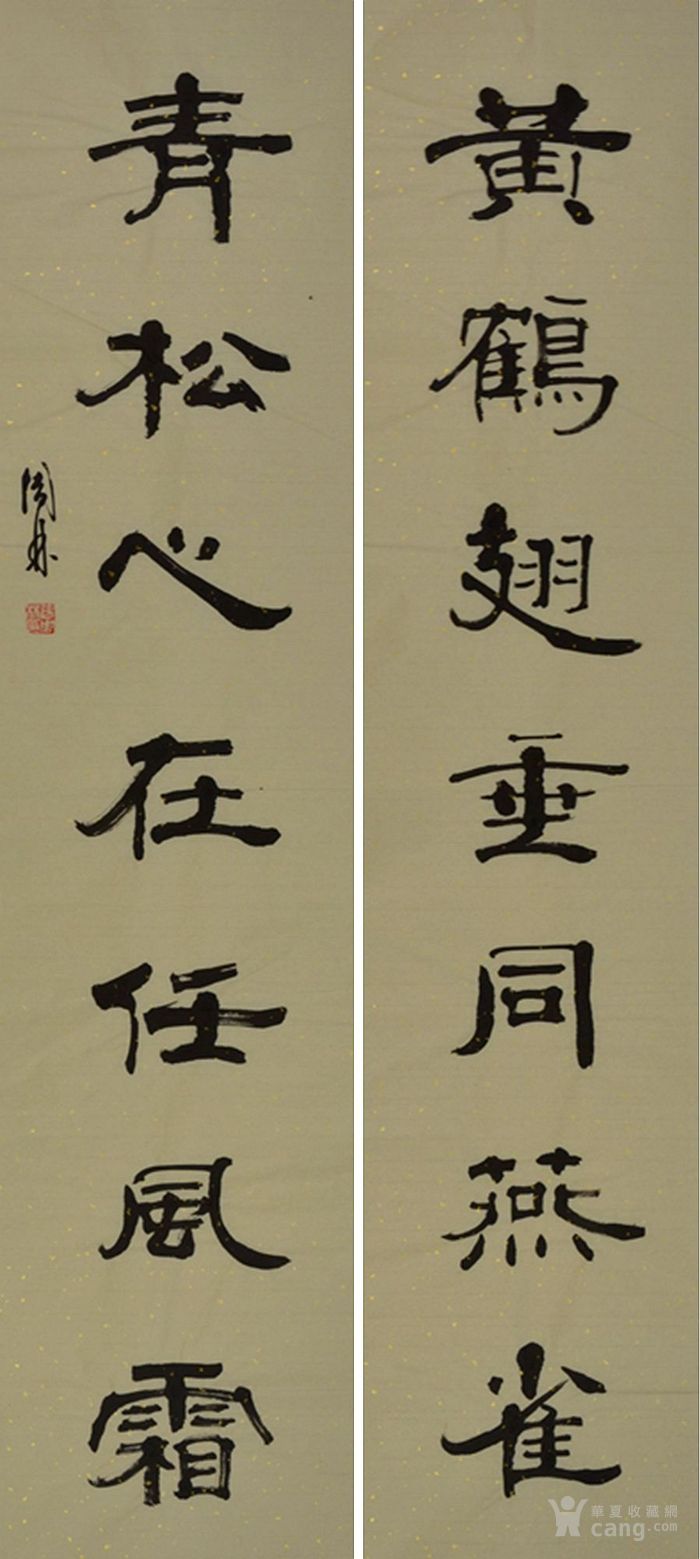 黃鶴翅垂同燕雀
青松心在任風霜
華夏收藏網
cang.com